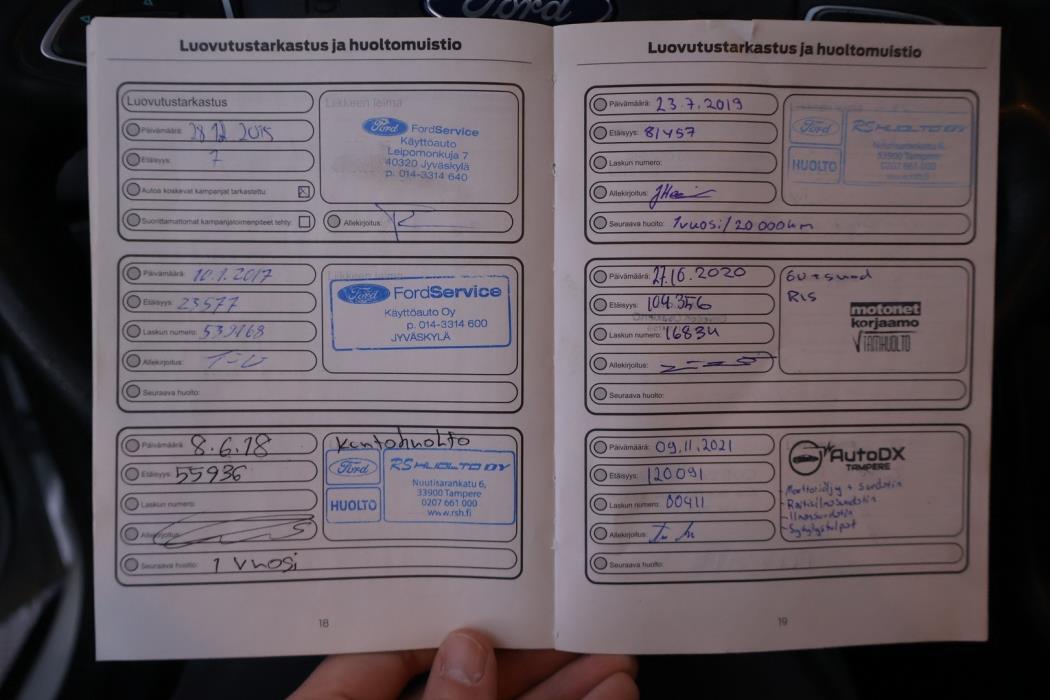 Ford
Luovutustarkastus ja huoltomuistio
Luovutustarkastus
Päivämäärä: 28.12.2015
Etäisyys: 7
Autoa koskevat kampanjat tarkastettu
Suorittamattomat kampanjatoimenpiteet tehty:
Liikkeen leima
Ford FordService
Käyttöauto
Leipomonkuja 7
40320 Jyväskylä
p. 014-3314 640
Allekirjoitus:
Päivämäärä: 10.1.2017
Etäisyys: 23577
Laskun numero: 539168
Allekirjoitus:
Liikkeen leima
Ford FordService
Käyttöauto Oy
p. 014-3314 600
JYVÄSKYLÄ
Seuraava huolto:
Päivämäärä: 8.6.18
Etäisyys: 55936
Laskun numero:
Allekirjoitus:
Kantohuolto
Ford
HUOLTO
RS HUOLTO OY
Nuutisarankatu 6,
33900 Tampere
0207 661 000
www.rsh.fi
Seuraava huolto: 1 vuosi
18
Luovutustarkastus ja huoltomuistio
Päivämäärä: 23.7.2019
Etäisyys: 81457
Laskun numero:
Allekirjoitus:
Ford
HUOLTO
RS HUOLTO OY
Nuutisarankatu 6,
33900 Tampere
0207 661 000
www.rsh.fi
Seuraava huolto: 1vuosi/20 000km
Päivämäärä: 21.10.2020
Etäisyys: 104356
Laskun numero: 16834
Allekirjoitus:
RIS
motonet
korjaamo
TAMHUOLTO
Seuraava huolto:
Päivämäärä: 09.11.2021
Etäisyys: 120091
Laskun numero: 00411
Allekirjoitus:
AutoDX
TAMPERE
Moottoriöljy + suodatin
- Raitisilmasuodatin
- Ilmansuodatin
- Sytytystulpat
Seuraava huolto:
19